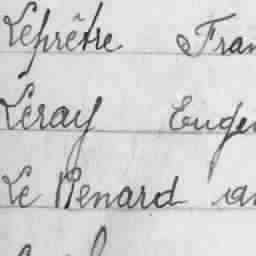 Leprêtre Fran
Leray Euge
Le Renard